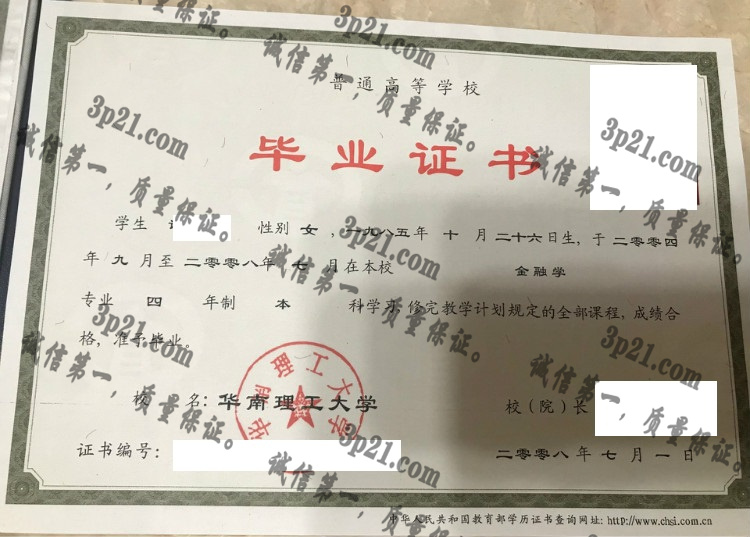 普通高等学校
毕业证书
学生 性别 女 ,一九八五年 十 月 二十六日生, 于 二〇〇四
年 九 月至 二〇〇八年 七 月在本校 金融学
专业 四 年制 本 科学习, 修完教学计划规定的全部课程, 成绩合
格, 准予毕业。
校 名: 华南理工大学
校(院)长
证书编号:
二〇〇八年 七 月 一 日
中华人民共和国教育部学历证书查询网址: http://www.chsi.com.cn
华南理工大学
3p21.com
诚信第一,质量保证。
3p21.com
诚信第一,质量保证。
3p21.com
诚信第一,质量保证。
3p21.com
诚信第一,质量保证。
3p21.com
诚信第一,质量保证。
3p21.com
诚信第一,质量保证。
3p21.com
诚信第一,质量保证。
3p21.com
诚信第一,质量保证。